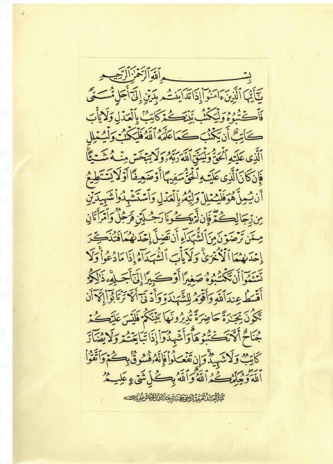 بِسْمِ اللَّهِ الرَّحْمَٰنِ الرَّحِيمِ
يَا أَيُّهَا الَّذِينَ ءَامَنُوا إِذَا تَدَايَنتُم بِدَيْنٍ إِلَىٰ أَجَلٍ مُسَمًّى
فَاكْتُبُوهُ وَلْيَكْتُب بَيْنَكُمْ كَاتِبٌ بِالْعَدْلِ وَلَا يَأْبَ
كَاتِبٌ أَن يَكْتُبَ كَمَا عَلَّمَهُ اللَّهُ فَلْيَكْتُبْ وَلْيُمْلِلِ
الَّذِي عَلَيْهِ الْحَقُّ وَلْيَتَّقِ اللَّهَ رَبَّهُ وَلَا يَبْخَسْ مِنْهُ شَيْئًا
فَإِن كَانَ الَّذِي عَلَيْهِ الْحَقُّ سَفِيهًا أَوْ ضَعِيفًا أَوْ لَا يَسْتَطِيعُ
أَن يُمِلَّ هُوَ فَلْيُمْلِلْ وَلِيُّهُ بِالْعَدْلِ وَاسْتَشْهِدُوا شَهِيدَيْنِ
مِن رِجَالِكُمْ فَإِن لَمْ يَكُونَا رَجُلَيْنِ فَرَجُلٌ وَامْرَأَتَانِ
مِمَّن تَرْضَوْنَ مِنَ الشُّهَدَاءِ أَن تَضِلَّ إِحْدَاهُمَا فَتُذَكِّرَ
إِحْدَاهُمَا الْأُخْرَىٰ وَلَا يَأْبَ الشُّهَدَاءُ إِذَا مَا دُعُوا وَلَا
تَسْأَمُوا أَن تَكْتُبُوهُ صَغِيرًا أَوْ كَبِيرًا إِلَىٰ أَجَلِهِ ذَٰلِكُمْ
أَقْسَطُ عِندَ اللَّهِ وَأَقْوَمُ لِلشَّهَادَةِ وَأَدْنَىٰ أَلَّا تَرْتَابُوا إِلَّا أَن
تَكُونَ تِجَارَةً حَاضِرَةً تُدِيرُونَهَا بَيْنَكُمْ فَلَيْسَ عَلَيْكُمْ
جُنَاحٌ أَلَّا تَكْتُبُوهَا وَأَشْهِدُوا إِذَا تَبَايَعْتُمْ وَلَا يُضَارَّ
كَاتِبٌ وَلَا شَهِيدٌ وَإِن تَفْعَلُوا فَإِنَّهُ فُسُوقٌ بِكُمْ وَاتَّقُوا
اللَّهَ وَيُعَلِّمُكُمُ اللَّهُ وَاللَّهُ بِكُلِّ شَيْءٍ عَلِيمٌ